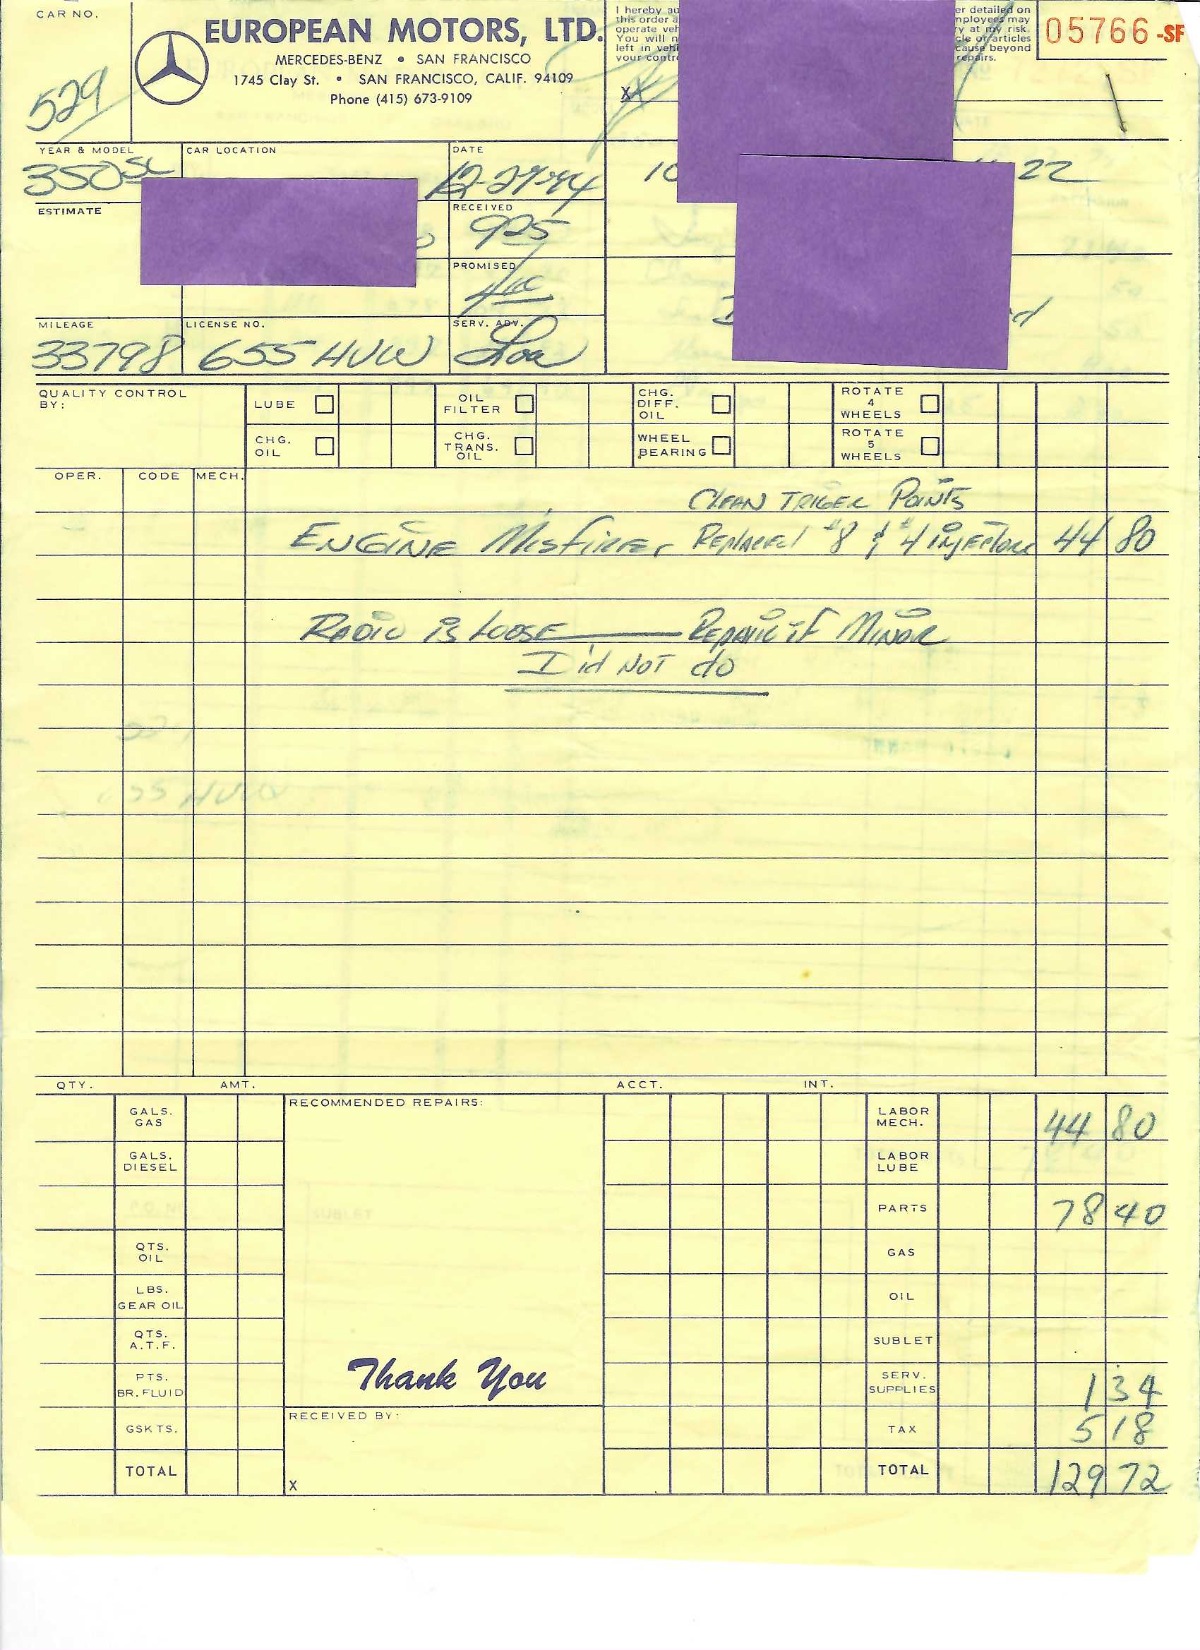 CAR NO.
529
EUROPEAN MOTORS, LTD.
MERCEDES-BENZ • SAN FRANCISCO
1745 Clay St. • SAN FRANCISCO, CALIF. 94109
Phone (415) 673-9109
I hereby
this order
operate
You will
left in
your
detailed on
may
at my risk.
or articles
cause beyond
repairs.
X
05766-SF
YEAR & MODEL
350SL
CAR LOCATION
DATE
22
ESTIMATE
RECEIVED
925
PROMISED
MILEAGE
33798
LICENSE NO.
655 HUW
SERV. ADV.
QUALITY CONTROL
BY:
LUBE
OIL
FILTER
CHG.
DIFF.
OIL
ROTATE
4
WHEELS
CHG.
OIL
CHG.
TRANS.
OIL
WHEEL
BEARING
ROTATE
5
WHEELS
OPER. CODE MECH.
CLEAN TRIGER POINTS
ENGINE MISFIRES REPLACED #8 & #4 INJECTORS 44 80
RADIO IS LOOSE — REPAIR IF MINOR
I did NOT do
QTY. AMT. ACCT. INT.
GALS.
GAS
GALS.
DIESEL
QTS.
OIL
LBS.
GEAR OIL
QTS.
A.T.F.
PTS.
BR. FLUID
GSKTS.
TOTAL
RECOMMENDED REPAIRS:
Thank You
RECEIVED BY:
X
LABOR
MECH. 44 80
LABOR
LUBE
PARTS 78 40
GAS
OIL
SUBLET
SERV.
SUPPLIES 1 34
TAX 5 18
TOTAL 129 72